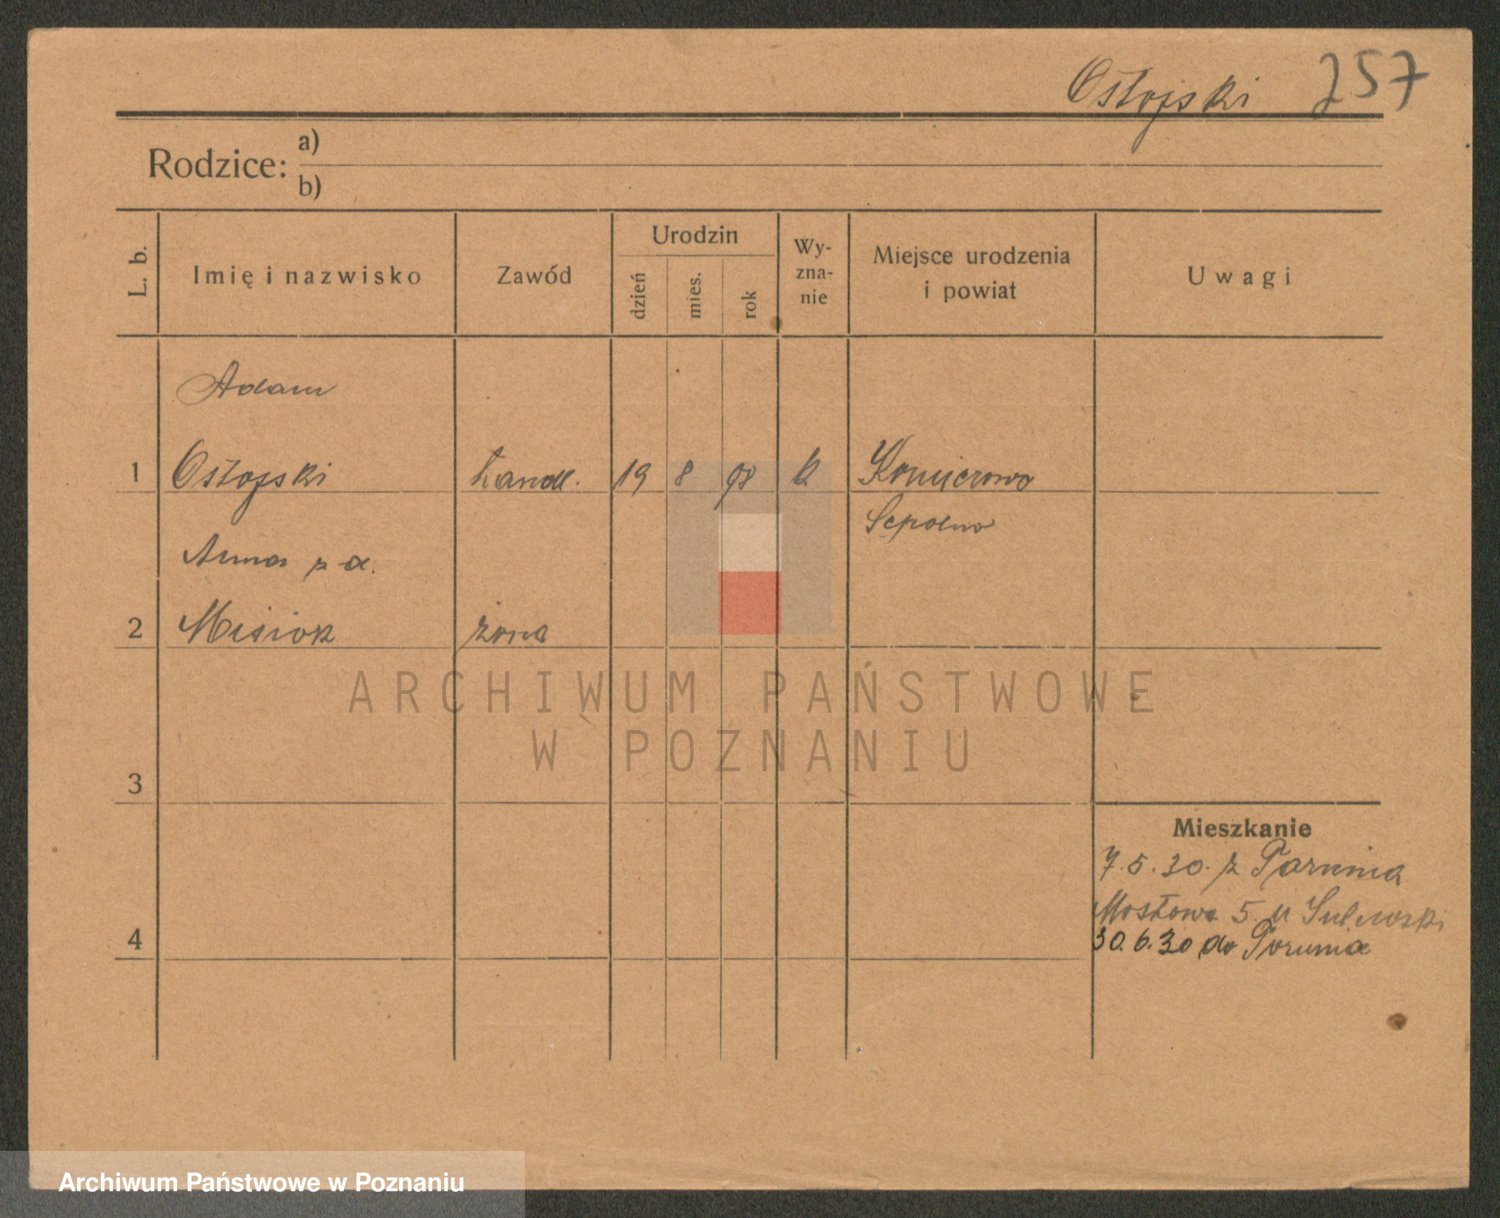 Ostojski 257
Rodzice: a)
b)
L. b. Imię i nazwisko Zawód Urodzin dzień mies. rok Wyzna-nie Miejsce urodzenia i powiat Uwagi
Adam
1 Ostojski handl. 19 8 98 k Komierowo
Sępolno
Anna z d.
2 Misiok żona
3
Mieszkanie
7.5.30. z Torunia
Mostowa 5 u
4 30.6.30 do Torunia
ARCHIWUM PAŃSTWOWE
W POZNANIU
Archiwum Państwowe w Poznaniu